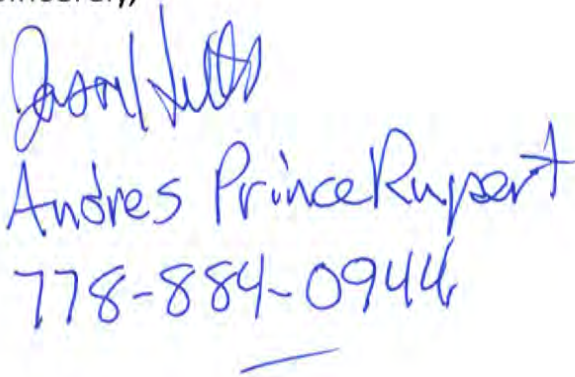 Jason
Andres Prince Rupert
778-884-0944